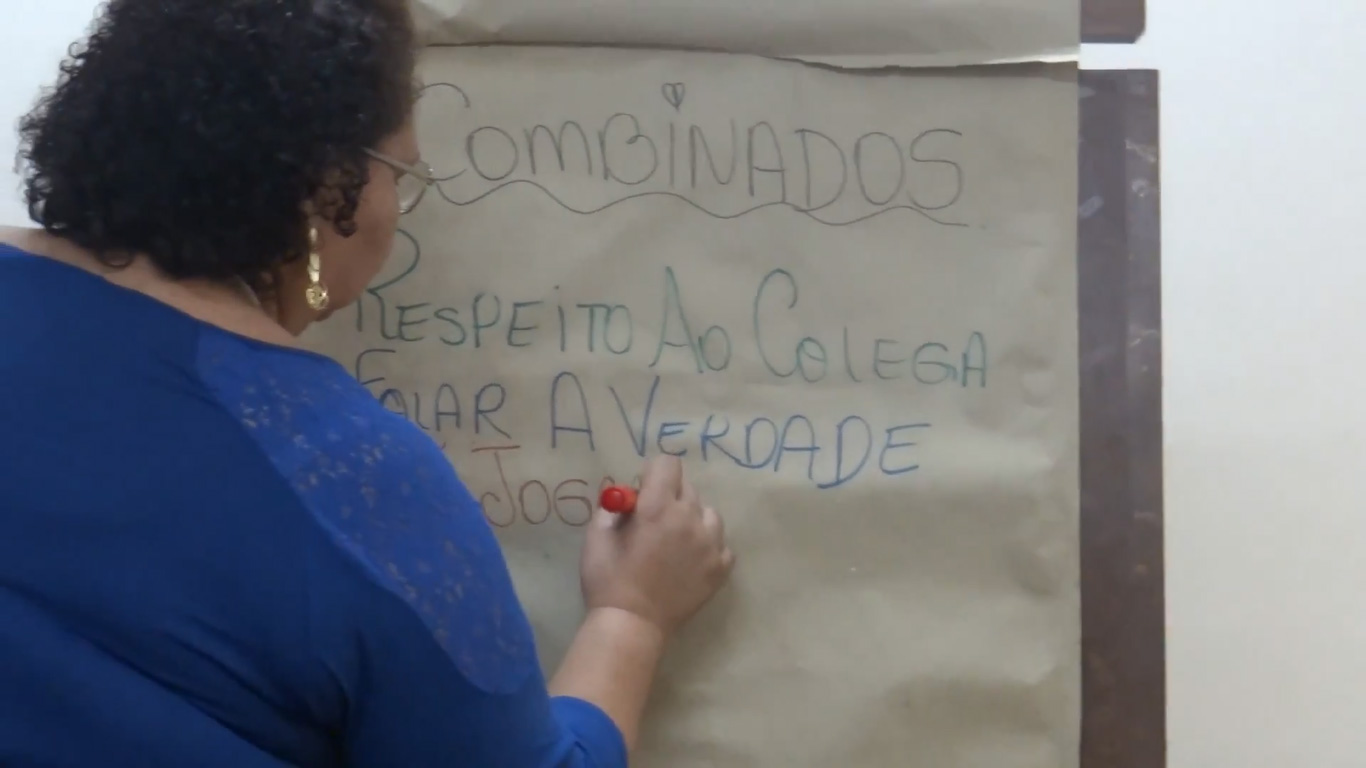 COMBINADOS
RESPEITO AO COLEGA
FALAR A VERDADE
JOGA